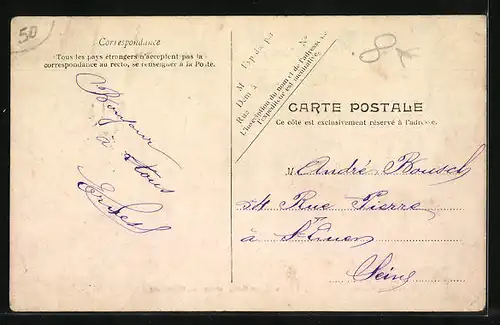 50
Correspondance
Tous les pays étrangers n'acceptent pas la
correspondance au recto, se renseigner à la Poste.
Bonjour
à tous
Ernest
Exp. par
N°
M
Dem. à
Rue
L'inscription du nom et de l'adresse de
l'Expéditeur est facultative.
8
CARTE POSTALE
Ce côté est exclusivement réservé à l'adresse.
M. André Bousch
54 Rue Pierre
à St Ouen
Seine